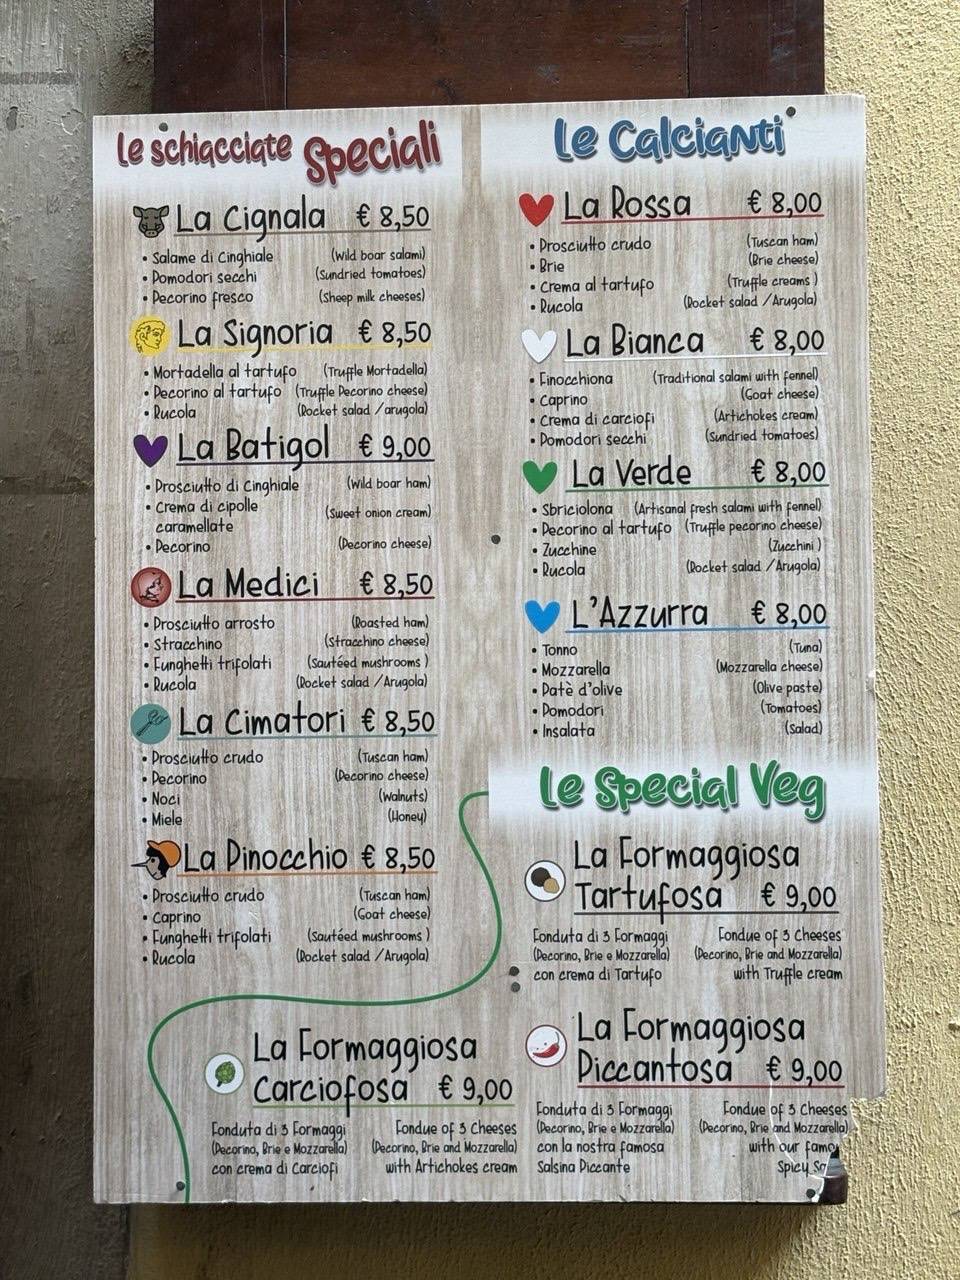 Le schiacciate Speciali
La Cignala € 8,50
• Salame di Cinghiale (Wild boar salami)
• Pomodori secchi (Sundried tomatoes)
• Pecorino fresco (Sheep milk cheeses)
La Signoria € 8,50
• Mortadella al tartufo (Truffle Mortadella)
• Pecorino al tartufo (Truffle Pecorino cheese)
• Rucola (Rocket salad /arugola)
La Batigol € 9,00
• Prosciutto di Cinghiale (Wild boar ham)
• Crema di cipolle
caramellate (Sweet onion cream)
• Pecorino (Pecorino cheese)
La Medici € 8,50
• Prosciutto arrosto (Roasted ham)
• Stracchino (Stracchino cheese)
• Funghetti trifolati (Sautéed mushrooms )
• Rucola (Rocket salad /Arugola)
La Cimatori € 8,50
• Prosciutto crudo (Tuscan ham)
• Pecorino (Pecorino cheese)
• Noci (Walnuts)
• Miele (Honey)
La Pinocchio € 8,50
• Prosciutto crudo (Tuscan ham)
• Caprino (Goat cheese)
• Funghetti trifolati (Sautéed mushrooms )
• Rucola (Rocket salad /Arugola)
Le Calcianti
La Rossa € 8,00
• Prosciutto crudo (Tuscan ham)
• Brie (Brie cheese)
• Crema al tartufo (Truffle creams )
• Rucola (Rocket salad /Arugola)
La Bianca € 8,00
• Finocchiona (Traditional salami with fennel)
• Caprino (Goat cheese)
• Crema di carciofi (Artichokes cream)
• Pomodori secchi (Sundried tomatoes)
La Verde € 8,00
• Sbriciolona (Artisanal fresh salami with fennel)
• Pecorino al tartufo (Truffle pecorino cheese)
• Zucchine (Zucchini )
• Rucola (Rocket salad /Arugola)
L'Azzurra € 8,00
• Tonno (Tuna)
• Mozzarella (Mozzarella cheese)
• Patè d'olive (Olive paste)
• Pomodori (Tomatoes)
• Insalata (Salad)
Le Special Veg
La Formaggiosa
Tartufosa € 9,00
Fonduta di 3 Formaggi Fondue of 3 Cheeses
(Pecorino, Brie e Mozzarella) (Pecorino, Brie and Mozzarella)
con crema di Tartufo with Truffle cream
La Formaggiosa
Carciofosa € 9,00
Fonduta di 3 Formaggi Fondue of 3 Cheeses
(Pecorino, Brie e Mozzarella) (Pecorino, Brie and Mozzarella)
con crema di Carciofi with Artichokes cream
La Formaggiosa
Piccantosa € 9,00
Fonduta di 3 Formaggi Fondue of 3 Cheeses
(Pecorino, Brie e Mozzarella) (Pecorino, Brie and Mozzarella)
con la nostra famosa with our
Salsina Piccante Spicy